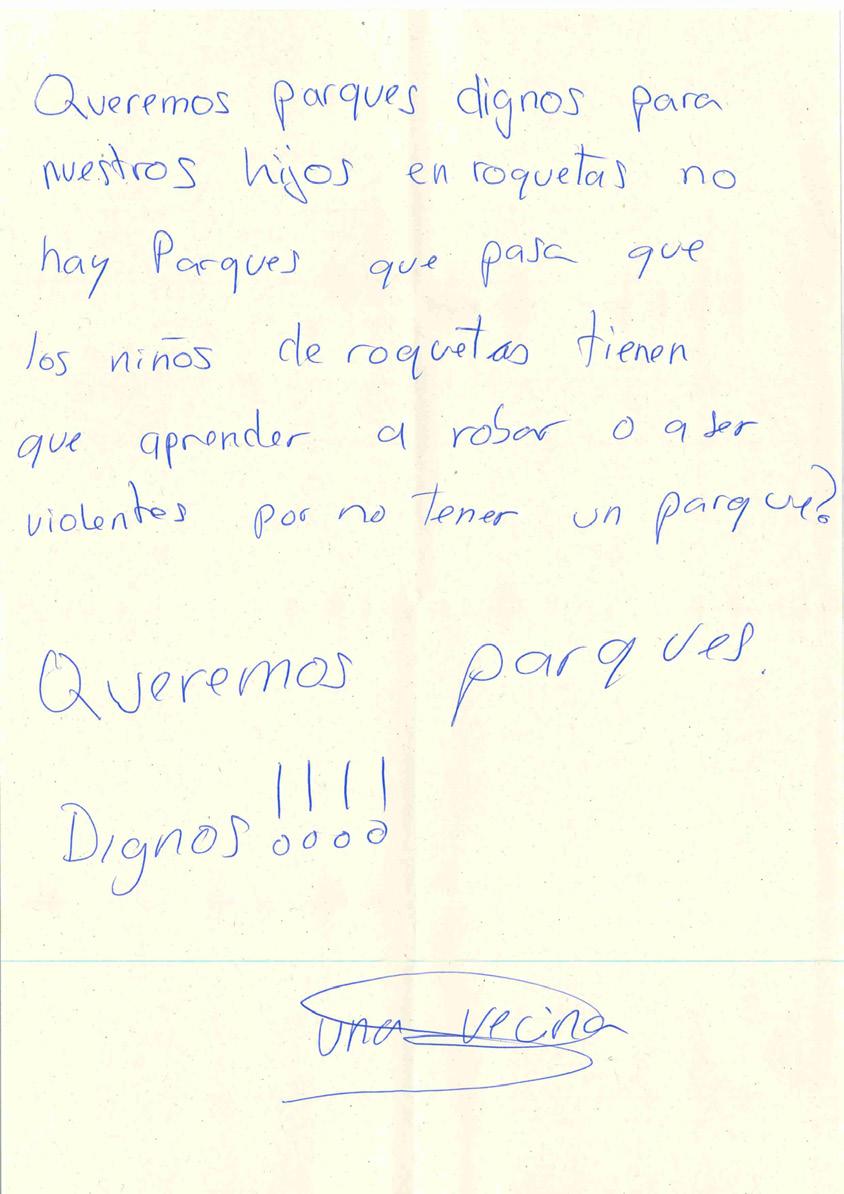 Queremos parques dignos para
nuestros hijos en roquetas no
hay Parques que pasa que
los niños de roquetas tienen
que aprender a robar o a ser
violentes por no tener un parque?
Queremos parques.
Dignos !!!!
una vecina